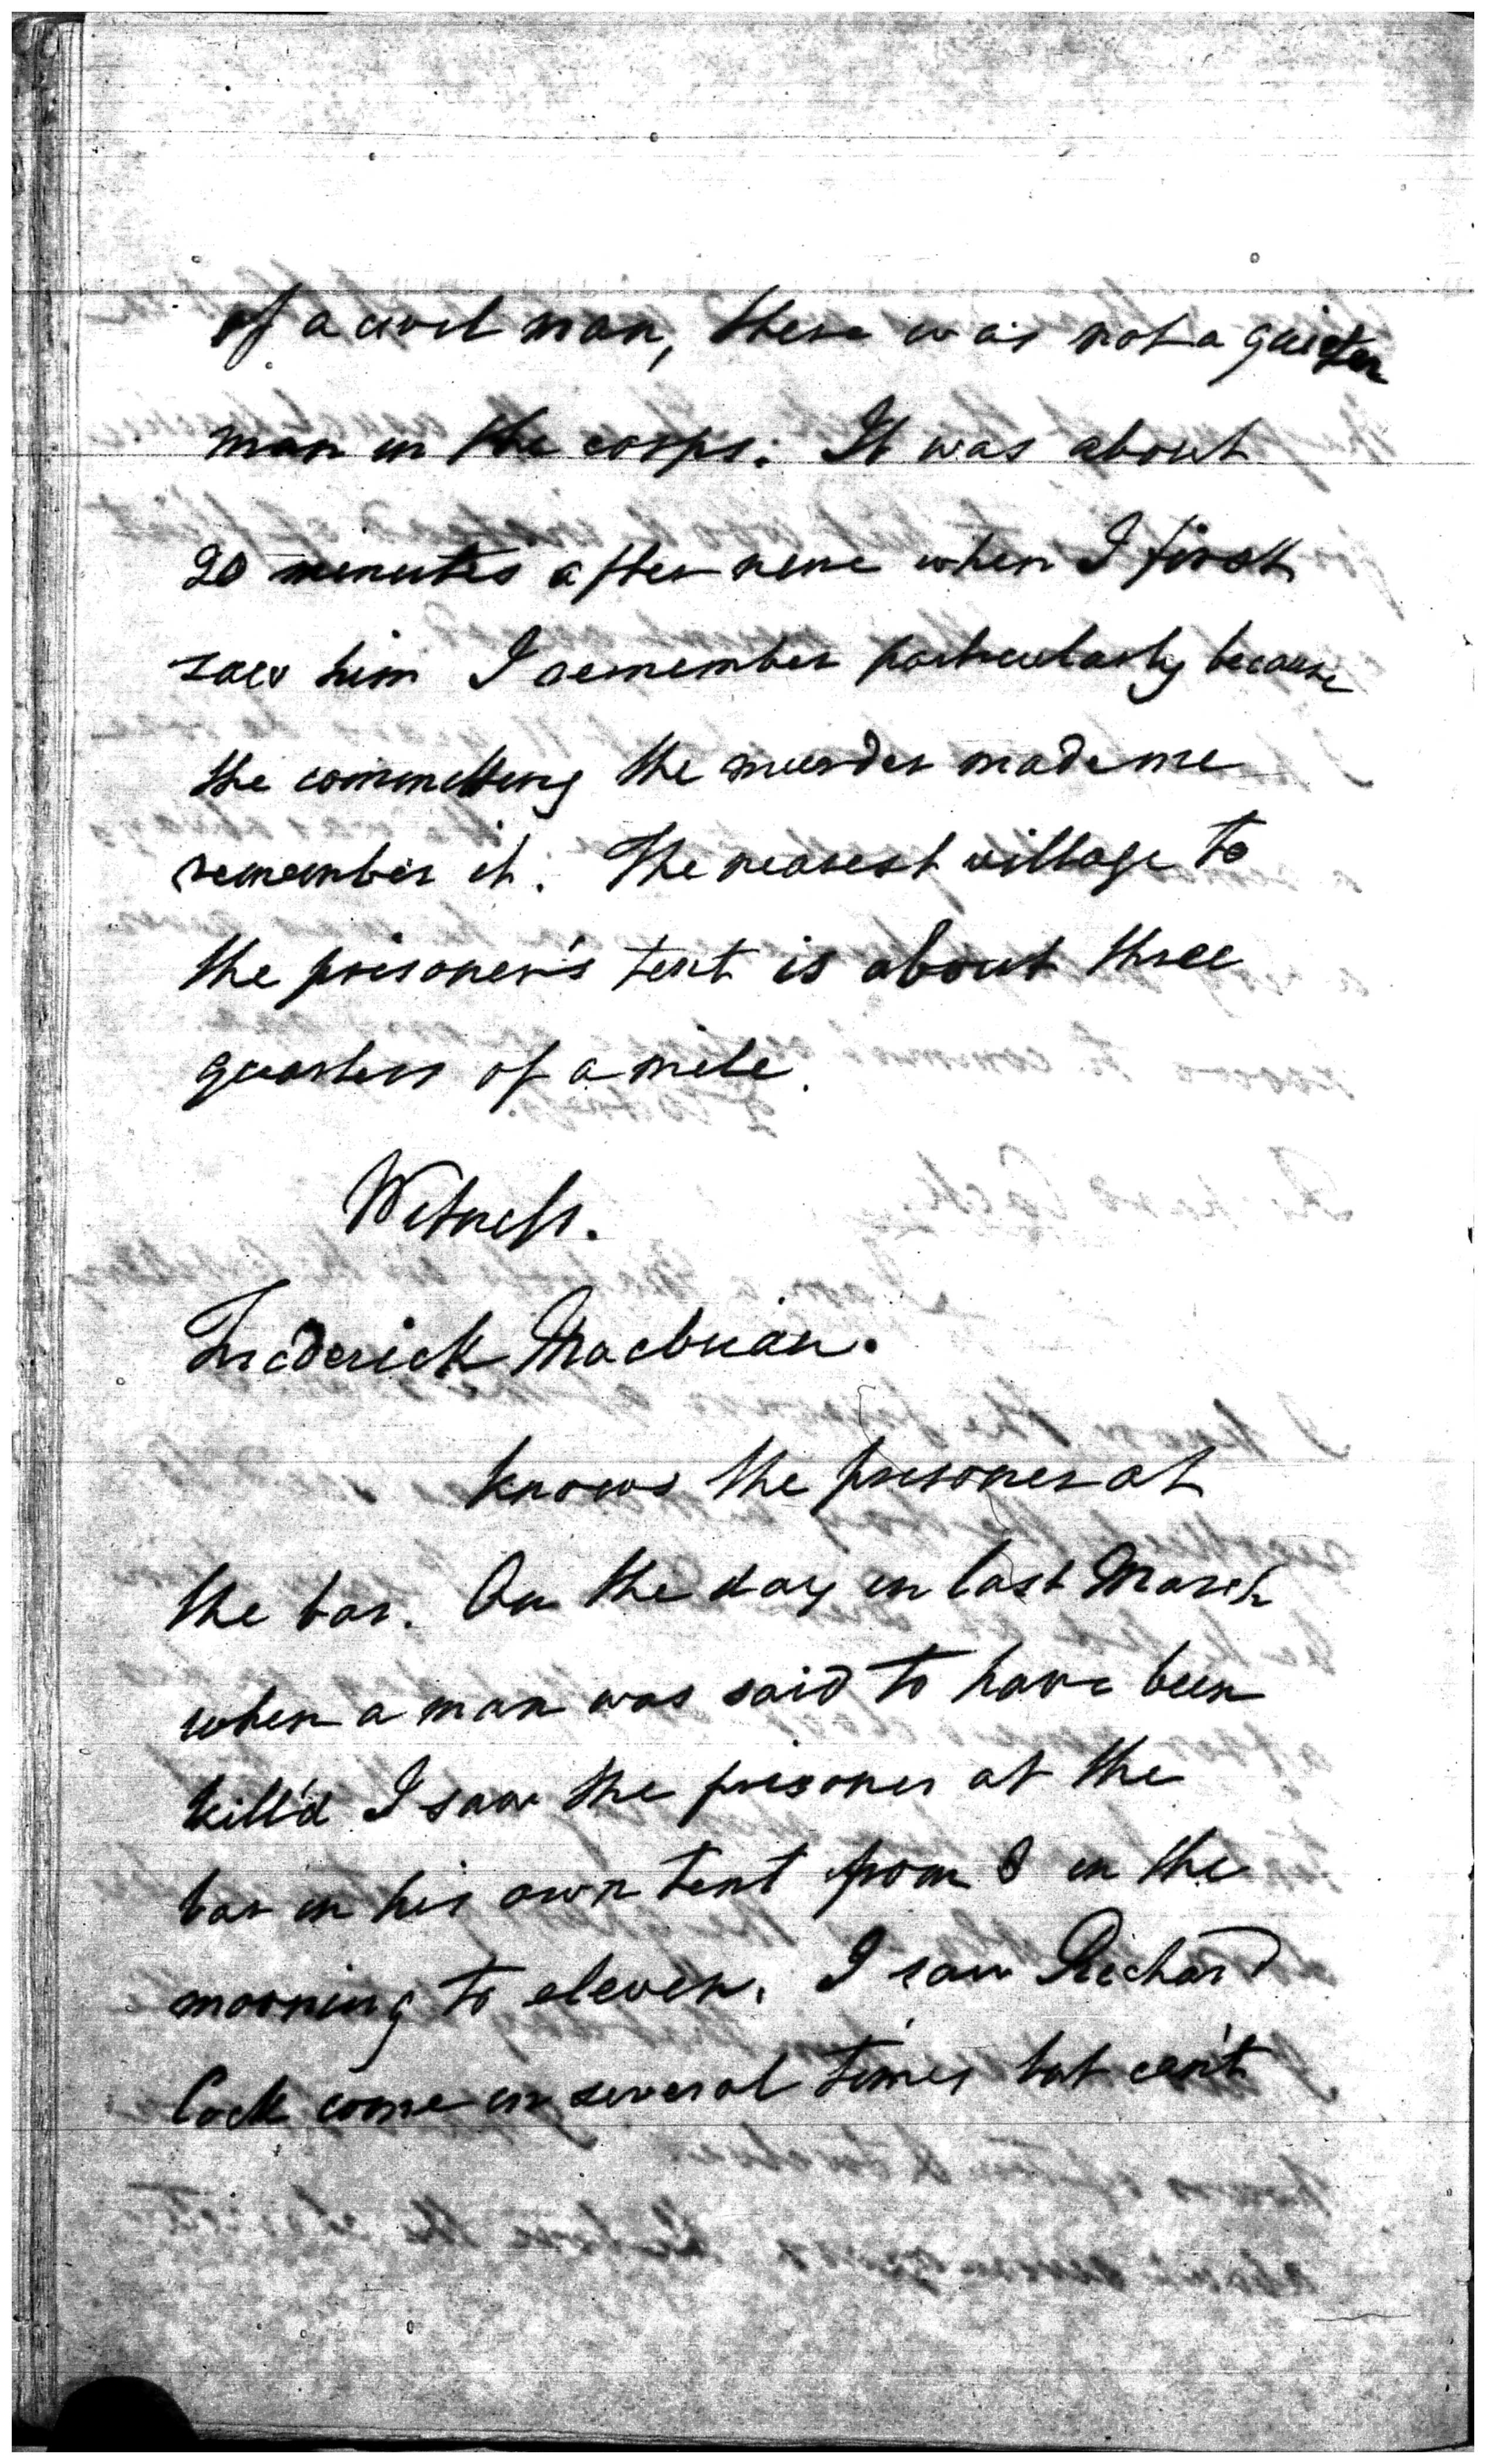 of a civil man, there was not a quieter
man in the corps. It was about
20 minutes after nine when I first
saw him I remember particularly because
the committing the murder made me
remember it. The nearest village to
the prisoner's tent is about three
quarters of a mile.
Witness.
Frederick
knows the prisoner at
the bar. On the day in last March
when a man was said to have been
kill'd I saw the prisoner at the
bar in his own tent from 8 in the
morning to eleven. I saw Richard
Cock come in several times but can't